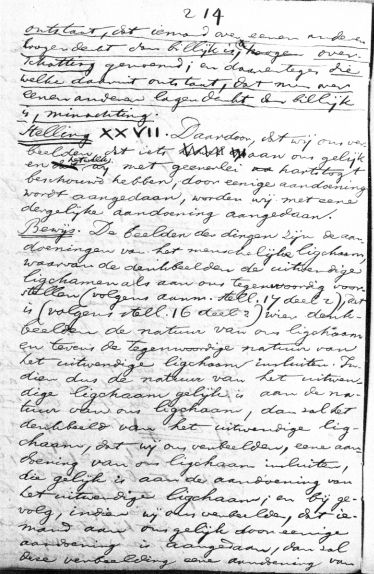 214
ontstaat, dat iemand over eenen anderen
hooger denkt dan billijk is, hooge over-
schatting genoemd; en daarentegen die
welke daaruit ontstaat, dat men over
eenen anderen lager denkt dan billijk
is, minachting.
Stelling XXVII. Daardoor, dat wij ons ver-
beelden, dat iets aan ons gelijk
en wij met geenerlei hartstogt
beschouwd hebben, door eenige aandoening
wordt aangedaan, worden wij met eene
dergelijke aandoening aangedaan.
Bewijs. De beelden der dingen zijn de aan-
doeningen van het menschelijke ligchaam,
waarvan de denkbeelden de uitwendige
ligchamen als aan ons tegenwoordig voor-
stellen (volgens aanm. stell. 17 deel 2), dat
is (volgens stell. 16 deel 2) wier denk-
beelden de natuur van ons ligchaam
en tevens de tegenwoordige natuur van
het uitwendige ligchaam insluiten. In-
dien dus de natuur van het uitwen-
dige ligchaam gelijk is aan de na-
tuur van ons ligchaam, dan zal het
denkbeeld van het uitwendige lig-
chaam, dat wij ons verbeelden, eene aan-
doening van ons ligchaam insluiten,
die gelijk is aan de aandoening van
het uitwendige ligchaam; en bij ge-
volg, indien wij ons verbeelden, dat ie-
mand aan ons gelijk door eenige
aandoening is aangedaan, dan zal
deze verbeelding eene aandoening van